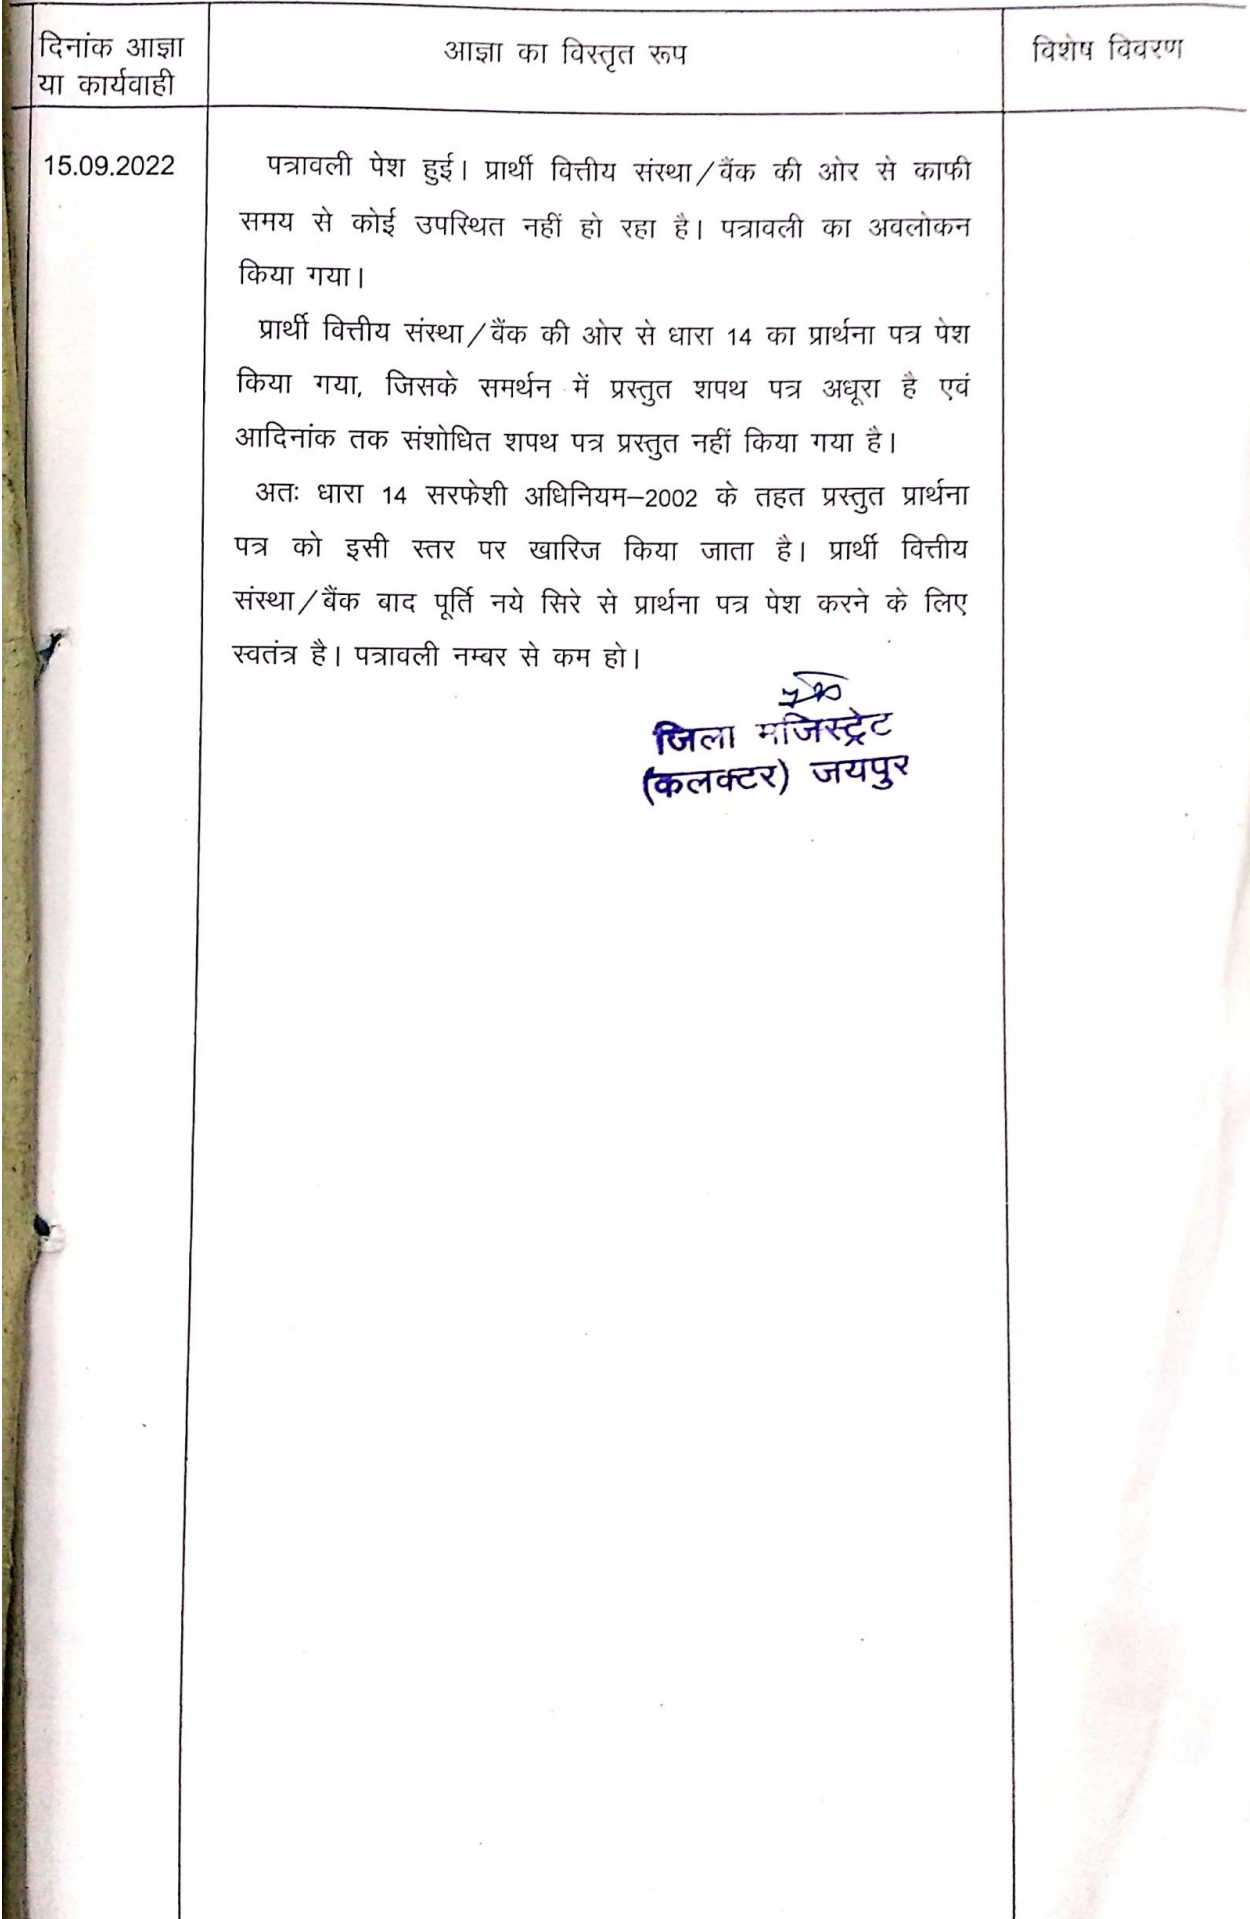 दिनांक आज्ञा
या कार्यवाही
आज्ञा का विस्तृत रूप
विशेष विवरण
15.09.2022
पत्रावली पेश हुई। प्रार्थी वित्तीय संस्था/बैंक की ओर से काफी
समय से कोई उपस्थित नहीं हो रहा है। पत्रावली का अवलोकन
किया गया।
प्रार्थी वित्तीय संस्था/बैंक की ओर से धारा 14 का प्रार्थना पत्र पेश
किया गया, जिसके समर्थन में प्रस्तुत शपथ पत्र अधूरा है एवं
आदिनांक तक संशोधित शपथ पत्र प्रस्तुत नहीं किया गया है।
अतः धारा 14 सरफेशी अधिनियम–2002 के तहत प्रस्तुत प्रार्थना
पत्र को इसी स्तर पर खारिज किया जाता है। प्रार्थी वित्तीय
संस्था/बैंक बाद पूर्ति नये सिरे से प्रार्थना पत्र पेश करने के लिए
स्वतंत्र है। पत्रावली नम्बर से कम हो।
जिला मजिस्ट्रेट
(कलक्टर) जयपुर